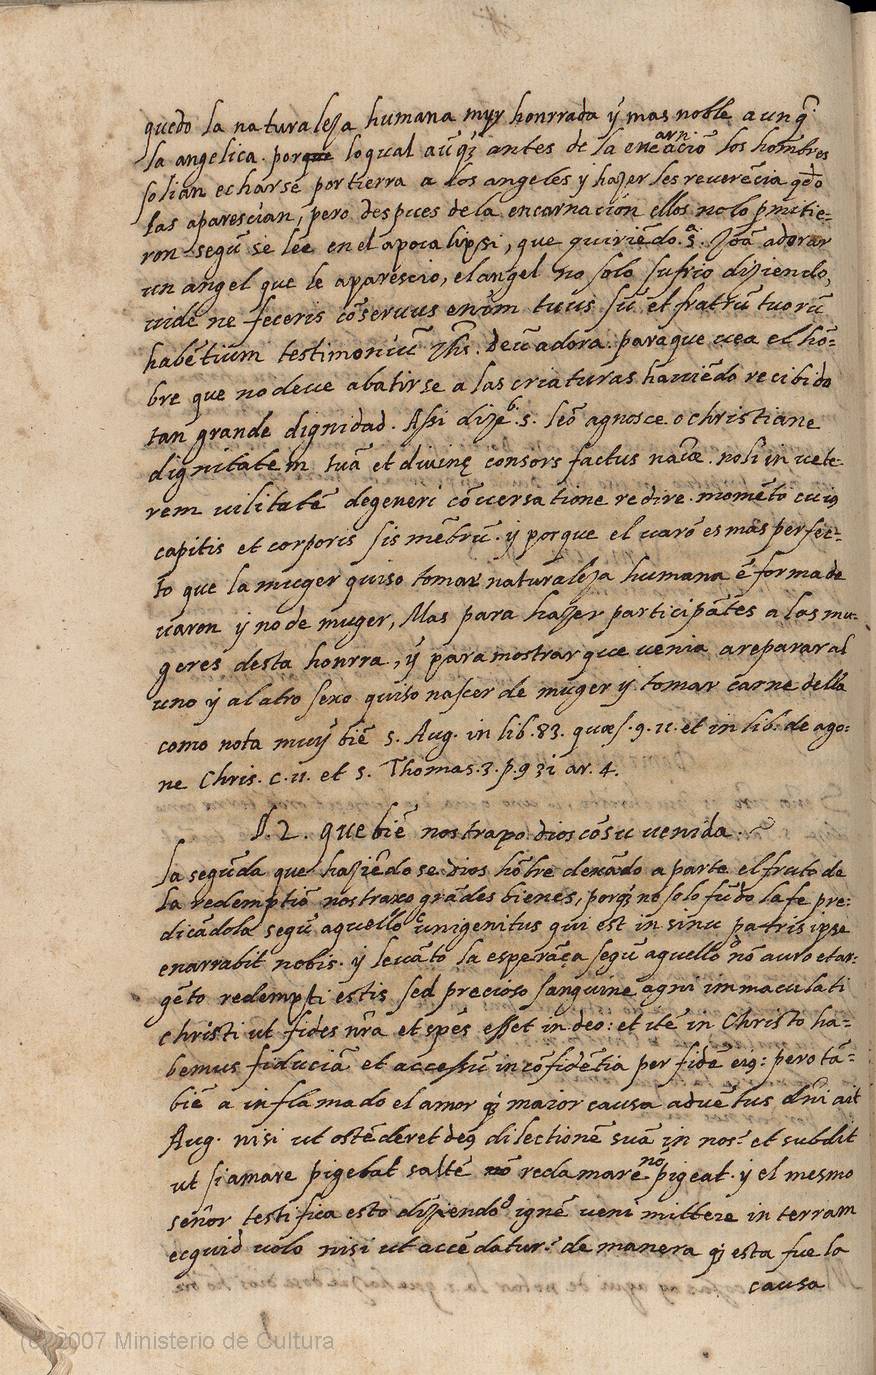 quedo la naturaleza humana muy honrrada ÿ mas noble aunq̃
la angelica. porque loqual aũq̃ antes de la encarnaciõ los hombres
solian echarse por tierra a los angeles y hazer les reuerẽcia qdo
las aparescian, pero despues dela encarnacion ellos nolo p̃mitie=
ron segũ se lee en el apocalipsi, que quiriẽdo .s. Joã adorar
un angel que le aparescio, el angel no solo sufrio diziendo,
uide ne feceris cõseruus enim tuus sũ et fratrũ tuorũ
habẽtium testimoniũ Jhs. deũ adora. paraque uea el hõ=
bre que nodeue abatirse a las criaturas hauiẽdo recibido
tan grande dignidad. Assi dize .s. leõ agnosce o christiane
dignitatem tuã et diuinę consors factus nãæ. noli in uete-
rem uilitatẽ degeneri cõuersatione redire. momẽto cuiꝰ
capitis et corporis sis mẽbrũ. ÿ porque el uarõ es mas perfec=
to que la muger quiso tomar naturaleza humana ẽ forma de
uaron ÿ no de muger, Mas para hazer participãtes a las mu-
geres desta honrra, ÿ para mostrar que uenia areparar al
uno ÿ al otro sexo quiso nascer de muger ÿ tomar carne della
como nota muÿ biẽ s. Aug. in lib. 83. quæs. 9. 11. et in lib. de ago=
ne Chris. c. 11. et s. Thomas. 3. p. q 31 ar. 4.
§. 2. que biẽ nos trapo dios cõsu uenida.
la segũda que haziẽdo se dios hõbre dexãdo a parte el fruto de
la redemptiõ nos traxo grãdes bienes, porq̃ no solo fũdo la fe pre=
dicãdola segũ aquello unigenitus qui est in sinu patris ipse
enarrabit nobis. ÿ leuãto la esperãça segũ aquello nõ auro et ar=
gẽto redempti estis sed precioso sanguine agni immaculati
christi ut fides nr̃a et spes esset in deo: et itẽ in Christo ha=
bemus fiduciã et accessũ in cõfidẽtia per fidẽ eiꝰ: pero tã=
biẽ a inflamado el amor q̃ maior causa aduẽtus dñi ait
Aug. nisi ut ostẽderet deꝰ dilectionẽ suã in nos? et subdit
ut si amare pigebat saltẽ nõ reclamare no pigeat. y el mesmo
señor testifica esto diziendo ignẽ ueni mittere in terram
ecquid uolo nisi ut accẽdatur? de manera q̃ esta fue la
causa
(c) 2007 Ministerio de Cultura